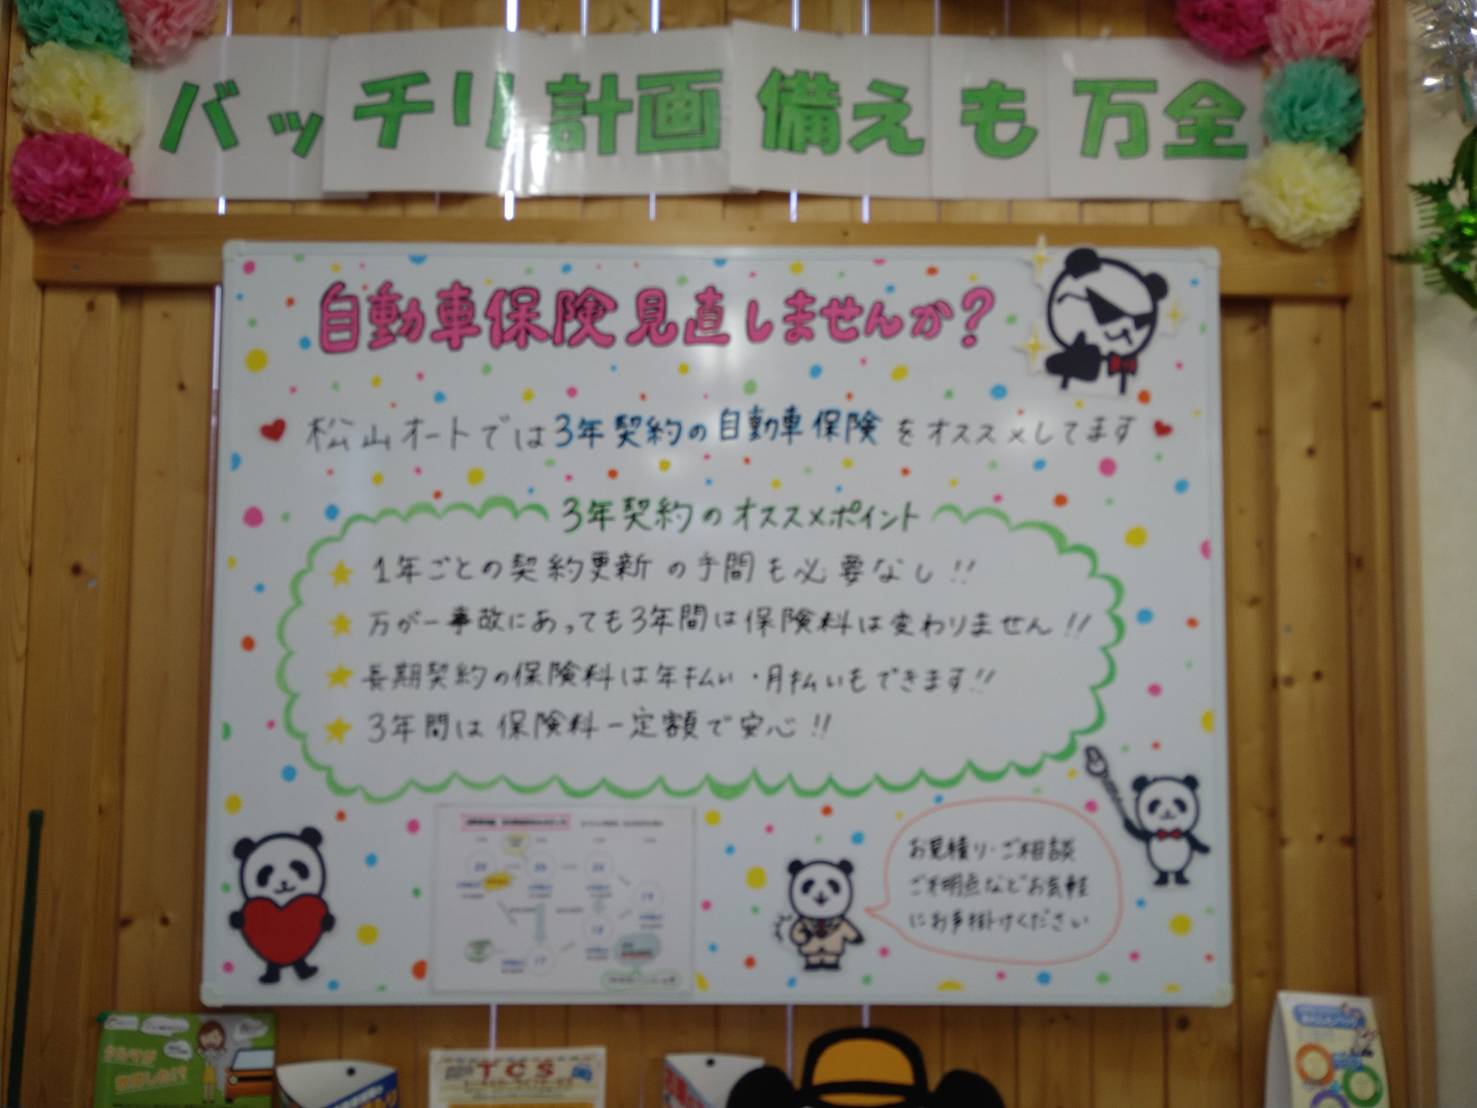 バッチリ計画 備えも万全
自動車保険見直しませんか?
松山オートでは3年契約の自動車保険をオススメしてます
3年契約のオススメポイント
1年ごとの契約更新の手間も必要なし!!
万が一事故にあっても3年間は保険料は変わりません!!
長期契約の保険料は年払い・月払いもできます!!
3年間は保険料一定額で安心!!
お見積り・ご相談
ご不明点などお気軽
にお手掛けください
TCS